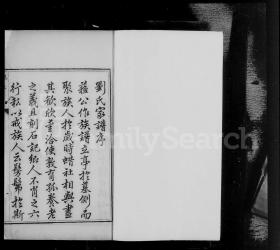 劉氏家譜序
蘇公作族譜立亭於墓側而
聚族人於歲時蜡社相與盡
其歡欣並洽使教育孤養老
之義且刻石記鄉人不肖之六
行於以戒族人云髣髴於斯
FamilySearch